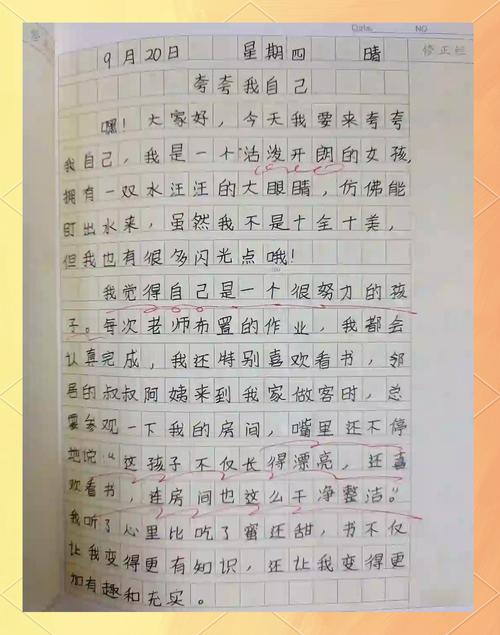 Date. NO
修正栏
9月20日 星期四 晴
夸夸我自己
嘿！大家好，今天我要来夸夸
我自己，我是一个活泼开朗的女孩，
拥有一双水汪汪的大眼睛，仿佛能
盯出水来，虽然我不是十全十美，
但我也有很多闪光点哦！
我觉得自己是一个很努力的孩
子。每次老师布置的作业，我都会
认真完成，我还特别喜欢看书，邻
居的叔叔阿姨来到我家做客时，总
要参观一下我的房间，嘴里还不停
地说：“这孩子不仅长得漂亮，还喜
欢看书，连房间也这么干净整洁。”
我听了心里比吃了蜜还甜，书不仅
让我变得更有知识，还让我变得更
加有趣和充实。